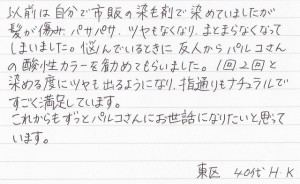 以前は自分で市販の染毛剤で染めていましたが
髪が傷み、パサパサ、ツヤもなくなり、まとまらなくなって
しまいました。悩んでいるときに友人からパルコさん
の酸性カラーを勧めてもらいました。1回2回と
染める度にツヤも出るようになり、指通りもナチュラルで
すごく満足しています。
これからもずっとパルコさんにお世話になりたいと思って
います。
東区 40代 H.K